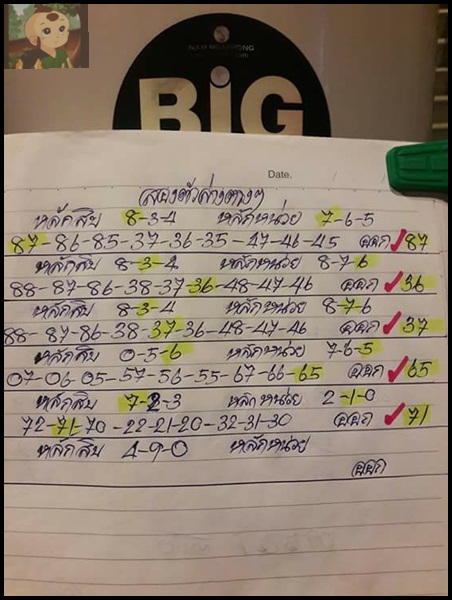 BiG
Date.
สองตัวล่างตางๆ
หลักสิบ 8-3-4 หลักหน่วย 7-6-5
87-86-85-37-36-35-47-46-45 ออก 87
หลักสิบ 8-3-4 หลักหน่วย 8-7-6
88-87-86-38-37-36-48-47-46 ออก 36
หลักสิบ 8-3-4 หลักหน่วย 8-7-6
88-87-86-38-37-36-48-47-46 ออก 37
หลักสิบ 0-5-6 หลักหน่วย 7-6-5
07-06-05-57-56-55-67-66-65 ออก 65
หลักสิบ 7-2-3 หลักหน่วย 2-1-0
72-71-70-22-21-20-32-31-30 ออก 71
หลักสิบ 4-9-0 หลักหน่วย
ออก